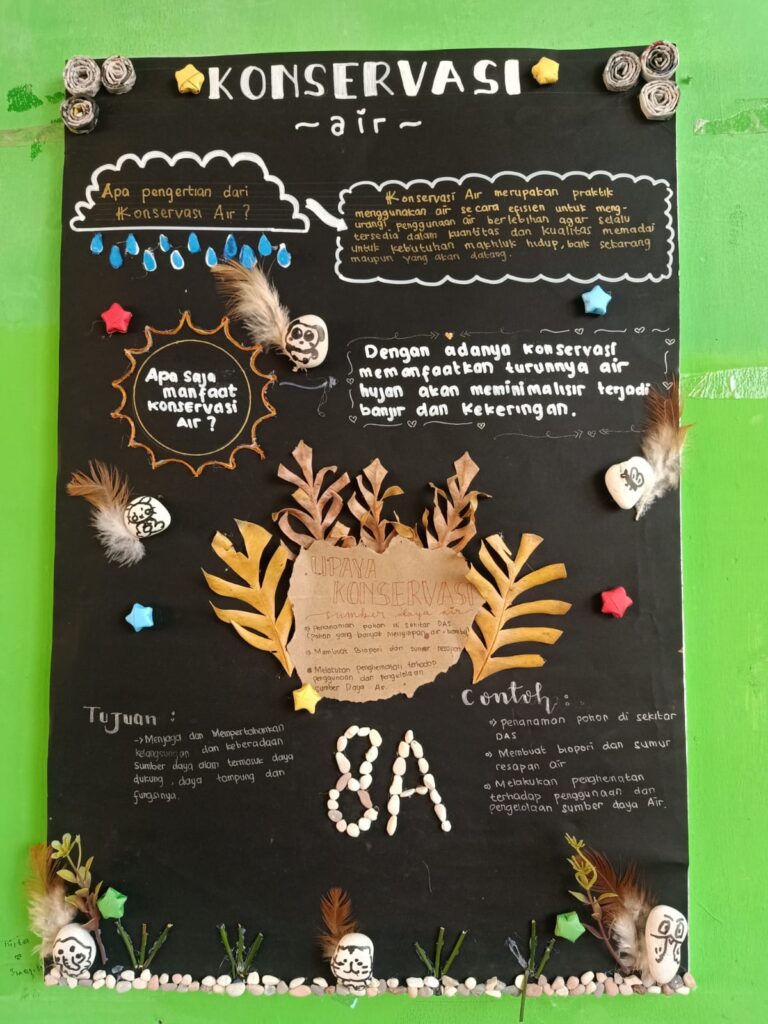 KONSERVASI
~air~
Apa pengertian dari
Konservasi Air ?
Konservasi Air merupakan praktik
menggunakan air secara efisien untuk meng-
urangi penggunaan air berlebihan agar selalu
tersedia dalam kuantitas dan kualitas memadai
untuk kebutuhan makhluk hidup, baik sekarang
maupun yang akan datang.
Apa saja
manfaat
konservasi
Air ?
Dengan adanya konservasi
memanfaatkan turunnya air
hujan akan meminimalisir terjadi
banjir dan kekeringan.
UPAYA
KONSERVASI
sumber daya air
Penanaman pohon di sekitar DAS
(pohon yang banyak menyimpan air
Membuat Biopori dan sumur resapan
Melakukan penghematan terhadap
penggunaan dan pengelolaan
sumber Daya Air.
Tujuan :
→ Menjaga dan Mempertahankan
kelangsungan dan keberadaan
Sumber daya alam termasuk daya
dukung, daya tampung dan
fungsinya.
Contoh :
→ penanaman pohon di sekitar
DAS
→ Membuat biopori dan sumur
resapan air
→ Melakukan penghematan
terhadap penggunaan dan
pengelolaan sumber daya Air.
8A